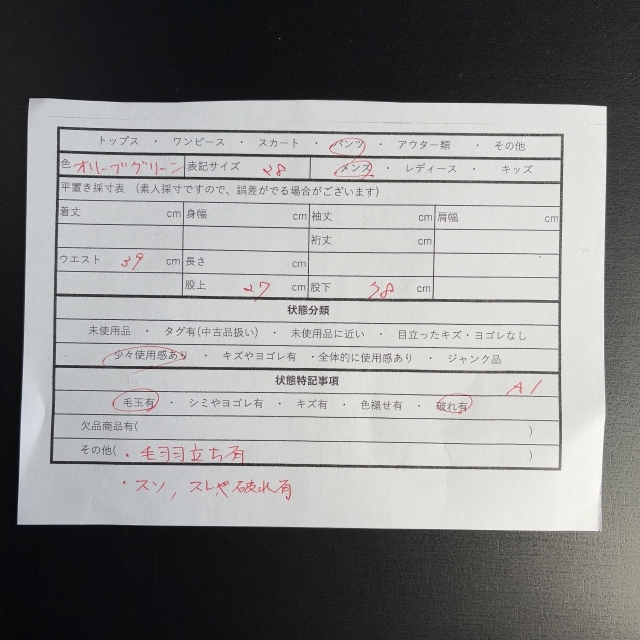 トップス ・ ワンピース ・ スカート ・ パンツ ・ アウター類 ・ その他
色 オリーブグリーン 表記サイズ 28 メンズ ・ レディース ・ キッズ
平置き採寸表 (素人採寸ですので、誤差がでる場合がございます)
着丈 cm 身幅 cm 袖丈 cm 肩幅 cm
裄丈 cm
ウエスト 39 cm 長さ cm
股上 27 cm 股下 78 cm
状態分類
未使用品 ・ タグ有(中古品扱い) ・ 未使用品に近い ・ 目立ったキズ・ヨゴレなし
少々使用感あり ・ キズやヨゴレ有 ・全体的に使用感あり ・ ジャンク品
状態特記事項 A1
毛玉有 ・ シミやヨゴレ有 ・ キズ有 ・ 色褪せ有 ・ 破れ有
欠品商品有( )
その他( ・毛羽立ち有 )
・スソ, スレや破れ有